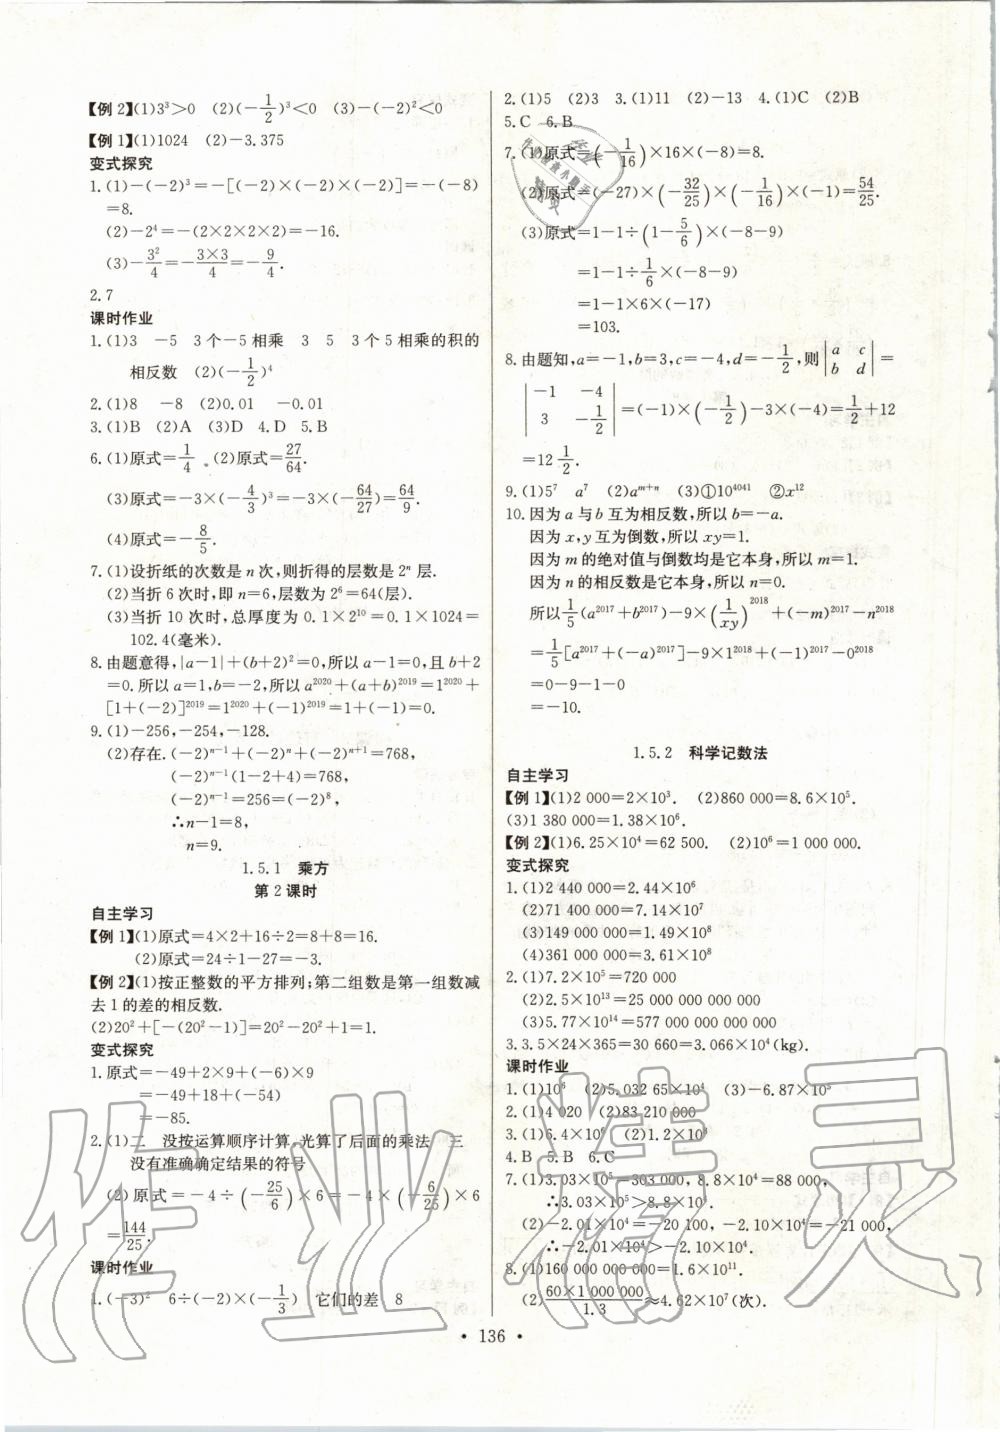 【例 2】(1)3³>0 (2)(-1/2)³<0 (3)-(-2)²<0
【例 1】(1)1024 (2)-3.375
变式探究
1.(1)-(-2)³=-[(-2)×(-2)×(-2)]=-(-8)
=8.
(2)-2⁴=-(2×2×2×2)=-16.
(3)-3²/4=-3×3/4=-9/4.
2.7
课时作业
1.(1)3 -5 3个-5相乘 3 5 3个5相乘的积的
相反数 (2)(-1/2)⁴
2.(1)8 -8 (2)0.01 -0.01
3.(1)B (2)A (3)D 4.D 5.B
6.(1)原式=1/4. (2)原式=27/64.
(3)原式=-3×(-4/3)³=-3×(-64/27)=64/9.
(4)原式=-8/5.
7.(1)设折纸的次数是n次,则折得的层数是2ⁿ层.
(2)当折6次时,即n=6,层数为2⁶=64(层).
(3)当折10次时,总厚度为0.1×2¹⁰=0.1×1024=
102.4(毫米).
8.由题意得,|a-1|+(b+2)²=0,所以a-1=0,且b+2
=0.所以a=1,b=-2,所以a²⁰²⁰+(a+b)²⁰¹⁹=1²⁰²⁰+
[1+(-2)]²⁰¹⁹=1²⁰²⁰+(-1)²⁰¹⁹=1+(-1)=0.
9.(1)-256,-254,-128.
(2)存在.(-2)ⁿ⁻¹+(-2)ⁿ+(-2)ⁿ⁺¹=768,
(-2)ⁿ⁻¹(1-2+4)=768,
(-2)ⁿ⁻¹=256=(-2)⁸,
∴n-1=8,
n=9.
1.5.1 乘方
第2课时
自主学习
【例 1】(1)原式=4×2+16÷2=8+8=16.
(2)原式=24÷1-27=-3.
【例 2】(1)按正整数的平方排列;第二组数是第一组数减
去1的差的相反数.
(2)20²+[-(20²-1)]=20²-20²+1=1.
变式探究
1.原式=-49+2×9+(-6)×9
=-49+18+(-54)
=-85.
2.(1)二 没按运算顺序计算,光算了后面的乘法 三
没有准确确定结果的符号
(2)原式=-4÷(-25/6)×6=-4×(-6/25)×6
=144/25.
课时作业
1.(-3)² 6÷(-2)×(-1/3) 它们的差 8
2.(1)5 (2)3 3.(1)11 (2)-13 4.(1)C (2)B
5.C 6.B
7.(1)原式=(-1/16)×16×(-8)=8.
(2)原式=(-27)×(-32/25)×(-1/16)×(-1)=54/25.
(3)原式=1-1÷(1-5/6)×(-8-9)
=1-1÷1/6×(-8-9)
=1-1×6×(-17)
=103.
8.由题知,a=-1,b=3,c=-4,d=-1/2,则|a c; b d|=
|-1 -4; 3 -1/2|=(-1)×(-1/2)-3×(-4)=1/2+12
=12 1/2.
9.(1)5⁷ a⁷ (2)aᵐ⁺ⁿ (3)①10⁴⁰⁴¹ ②x¹²
10.因为a与b互为相反数,所以b=-a.
因为x,y互为倒数,所以xy=1.
因为m的绝对值与倒数均是它本身,所以m=1.
因为n的相反数是它本身,所以n=0.
所以1/5(a²⁰¹⁷+b²⁰¹⁷)-9×(1/xy)²⁰¹⁸+(-m)²⁰¹⁷-n²⁰¹⁸
=1/5[a²⁰¹⁷+(-a)²⁰¹⁷]-9×1²⁰¹⁸+(-1)²⁰¹⁷-0²⁰¹⁸
=0-9-1-0
=-10.
1.5.2 科学记数法
自主学习
【例 1】(1)2 000=2×10³. (2)860 000=8.6×10⁵.
(3)1 380 000=1.38×10⁶.
【例 2】(1)6.25×10⁴=62 500. (2)10⁶=1 000 000.
变式探究
1.(1)2 440 000=2.44×10⁶
(2)71 400 000=7.14×10⁷
(3)149 000 000=1.49×10⁸
(4)361 000 000=3.61×10⁸
2.(1)7.2×10⁵=720 000
(2)2.5×10¹³=25 000 000 000 000
(3)5.77×10¹⁴=577 000 000 000 000
3.3.5×24×365=30 660=3.066×10⁴(kg).
课时作业
1.(1)10⁶ (2)5.032 65×10⁴ (3)-6.87×10⁵
2.(1)4 020 (2)83 210 000
3.(1)6.4×10⁶ (2)1.2×10⁸
4.B 5.B 6.C
7.(1)3.03×10⁵=303 000,8.8×10⁴=88 000,
∴3.03×10⁵>8.8×10⁴.
(2)-2.01×10⁴=-20 100,-2.10×10⁴=-21 000,
∴-2.01×10⁴>-2.10×10⁴.
8.(1)160 000 000 000=1.6×10¹¹.
(2)60×1 000 000/1.3≈4.62×10⁷(次).
• 136 •
作业精灵